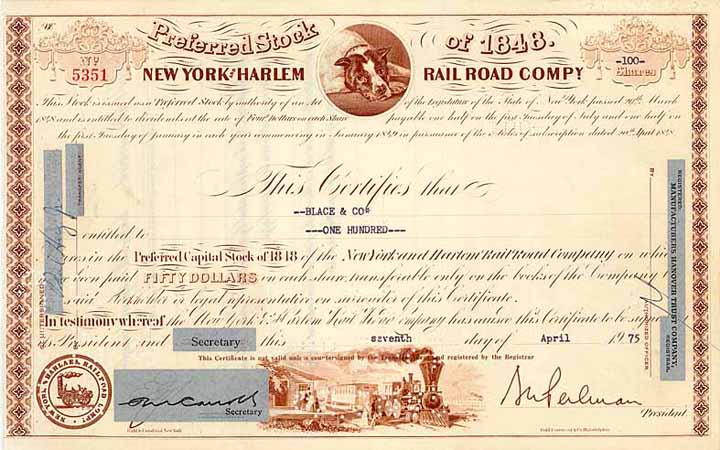 Preferred Stock of 1848.
No 5351
NEW YORK AND HARLEM RAIL ROAD COMPY
-100- Shares
This Stock is issued as a Preferred Stock by authority of an Act of the Legislature of the State of New York passed March
1848 and is entitled to dividends at the rate of Four Dollars on each Share payable one half on the first Tuesday of July and one half on
the first Tuesday of January in each year commencing in January in pursuance of the of subscription dated
This Certifies that
--BLACE & CO*
---ONE HUNDRED---
entitled to
in the Preferred Capital Stock of 1848 of the New York and Harlem Rail Road Company on which
been paid FIFTY DOLLARS on each share, transferable only on the books of the Company
said Stockholder or legal representative on surrender of this Certificate.
In testimony whereof the New York & Harlem Rail Road Company has caused this Certificate to be signed
President and Secretary seventh day of April 1975
This Certificate is not valid unless countersigned by the Transfer and registered by the Registrar
NEW YORK & HARLEM RAILROAD COMPY
Secretary
President.
TRANSFER AGENT
COUNTERSIGNED
REGISTERED:
MANUFACTURERS HANOVER TRUST COMPANY,
REGISTRAR,
OFFICER